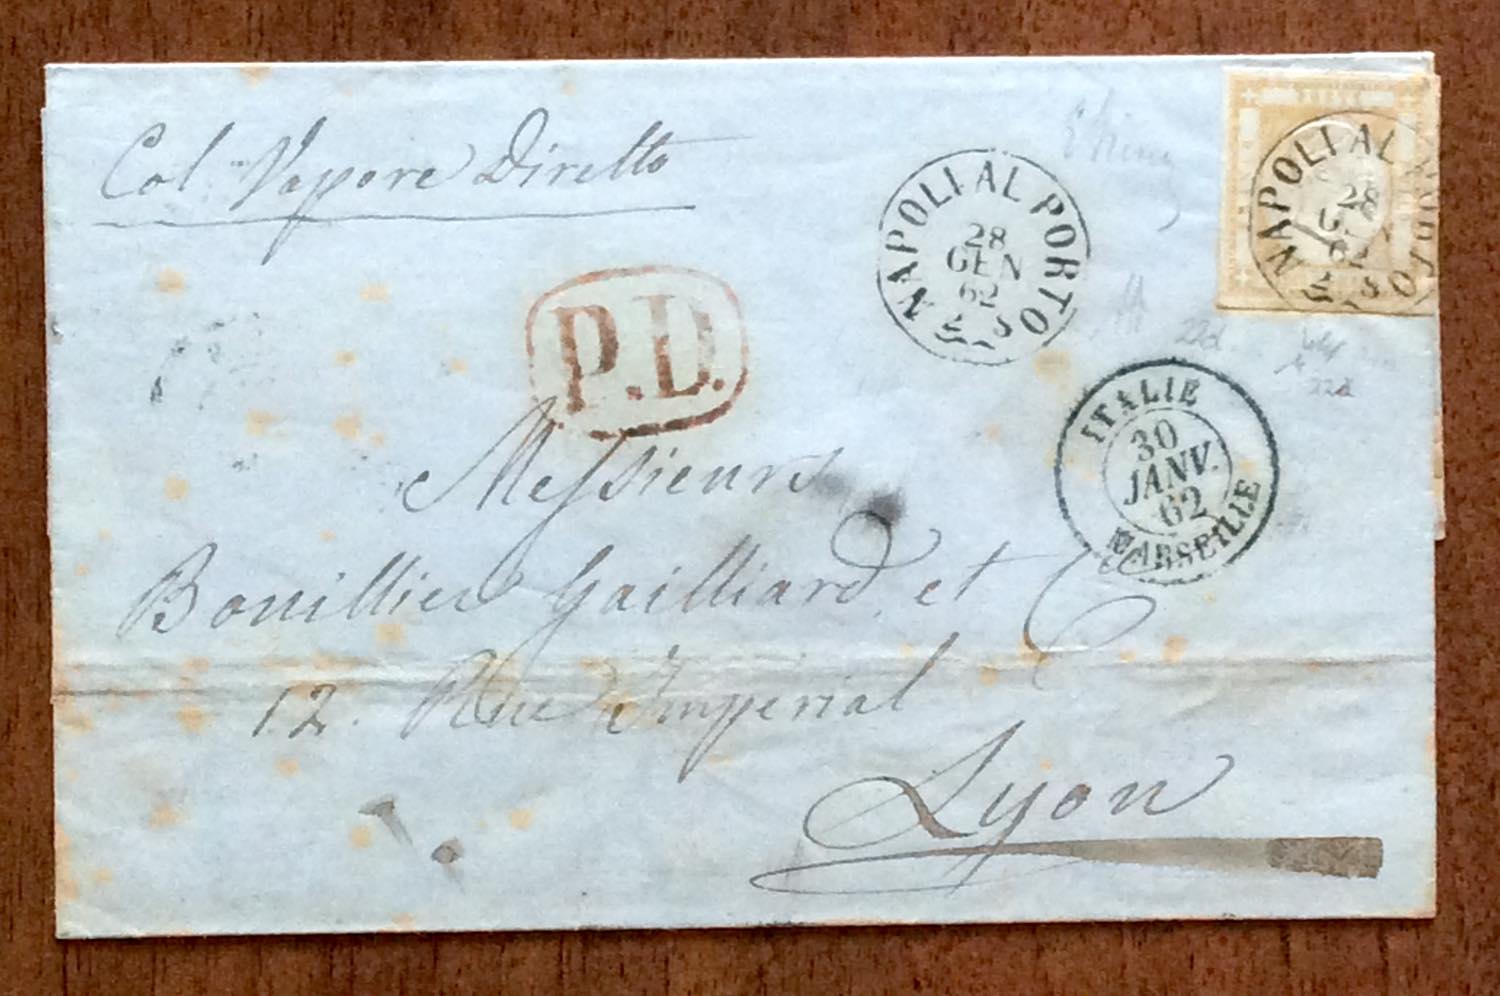 Col Vapore Diretto
NAPOLI AL PORTO
28
GEN
62
5 S
NAPOLI AL PORTO
28
G
62
5 S
P.D.
22d
22d
ITALIE
30
JANV.
62
MARSEILLE
Messieurs
Bouillier Gailliard, et C
12. Rue Impérial
Lyon